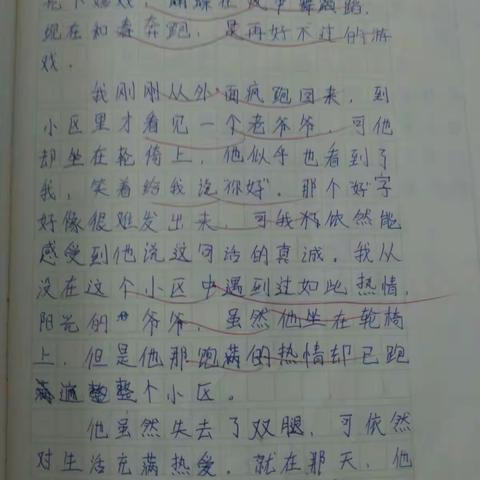 光下嬉戏，蝴蝶在风中舞蹈.
现在和春奔跑，是再好不过的游
戏.
我刚刚从外面疯跑回来，到
小区里才看见一个老爷爷，可他
却坐在轮椅上，他似乎也看到了
我，笑着给我说“你好”，那个“好”字
好像很难发出来，可我依然能
感受到他说这句话的真诚，我从
没在这个小区中遇到过如此热情，
阳光的爷爷，虽然他坐在轮椅
上，但是他那跑满的热情却已跑
遍整个小区。
他虽然失去了双腿，可依然
对生活充满热爱，就在那天，他